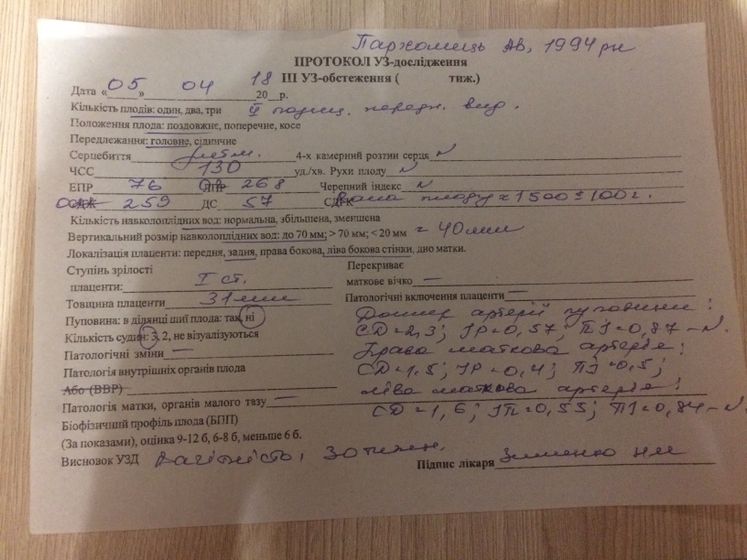 Пархомець АВ, 1994 рн
ПРОТОКОЛ УЗ-дослідження
ІІІ УЗ-обстеження ( тиж.)
Дата «05» 04 18 20 р.
Кількість плодів: один, два, три ІІ позиц. передн. вид.
Положення плода: поздовжнє, поперечне, косе
Передлежання: головне, сідничне
Серцебиття ритм. 4-х камерний розтин серця N
ЧСС 130 уд./хв. Рухи плоду N
БПР 76 ОГ 268 Черепний індекс N
ОЖ 259 ДС 57 Вага плоду ≈ 1500 ± 100 г.
Кількість навколоплідних вод: нормальна, збільшена, зменшена
Вертикальний розмір навколоплідних вод: до 70 мм; > 70 мм; < 20 мм = 40 мм
Локалізація плаценти: передня, задня, права бокова, ліва бокова стінки, дно матки.
Ступінь зрілості
плаценти: І ст.
Перекриває
маткове вічко —
Товщина плаценти 31 мм Патологічні включення плаценти —
Пуповина: в ділянці шиї плода: так, ні
Кількість судин: 3, 2, не візуалізуються
Патологічні зміни —
Патологія внутрішніх органів плода
Або (ВВР)
Патологія матки, органів малого тазу —
Доплер артерії пуповини:
СД=2,3; ІР=0,57; ПІ=0,87 – N.
Права маткова артерія:
СД=1,5; ІР=0,4; ПІ=0,5;
Ліва маткова артерія:
СД=1,6; =0,55; ПІ=0,84 – N.
Біофізичний профіль плода (БПП)
(За показами), оцінка 9-12 б, 6-8 б, меньше 6 б.
Висновок УЗД Вагітність, 30 тижн.
Підпис лікаря